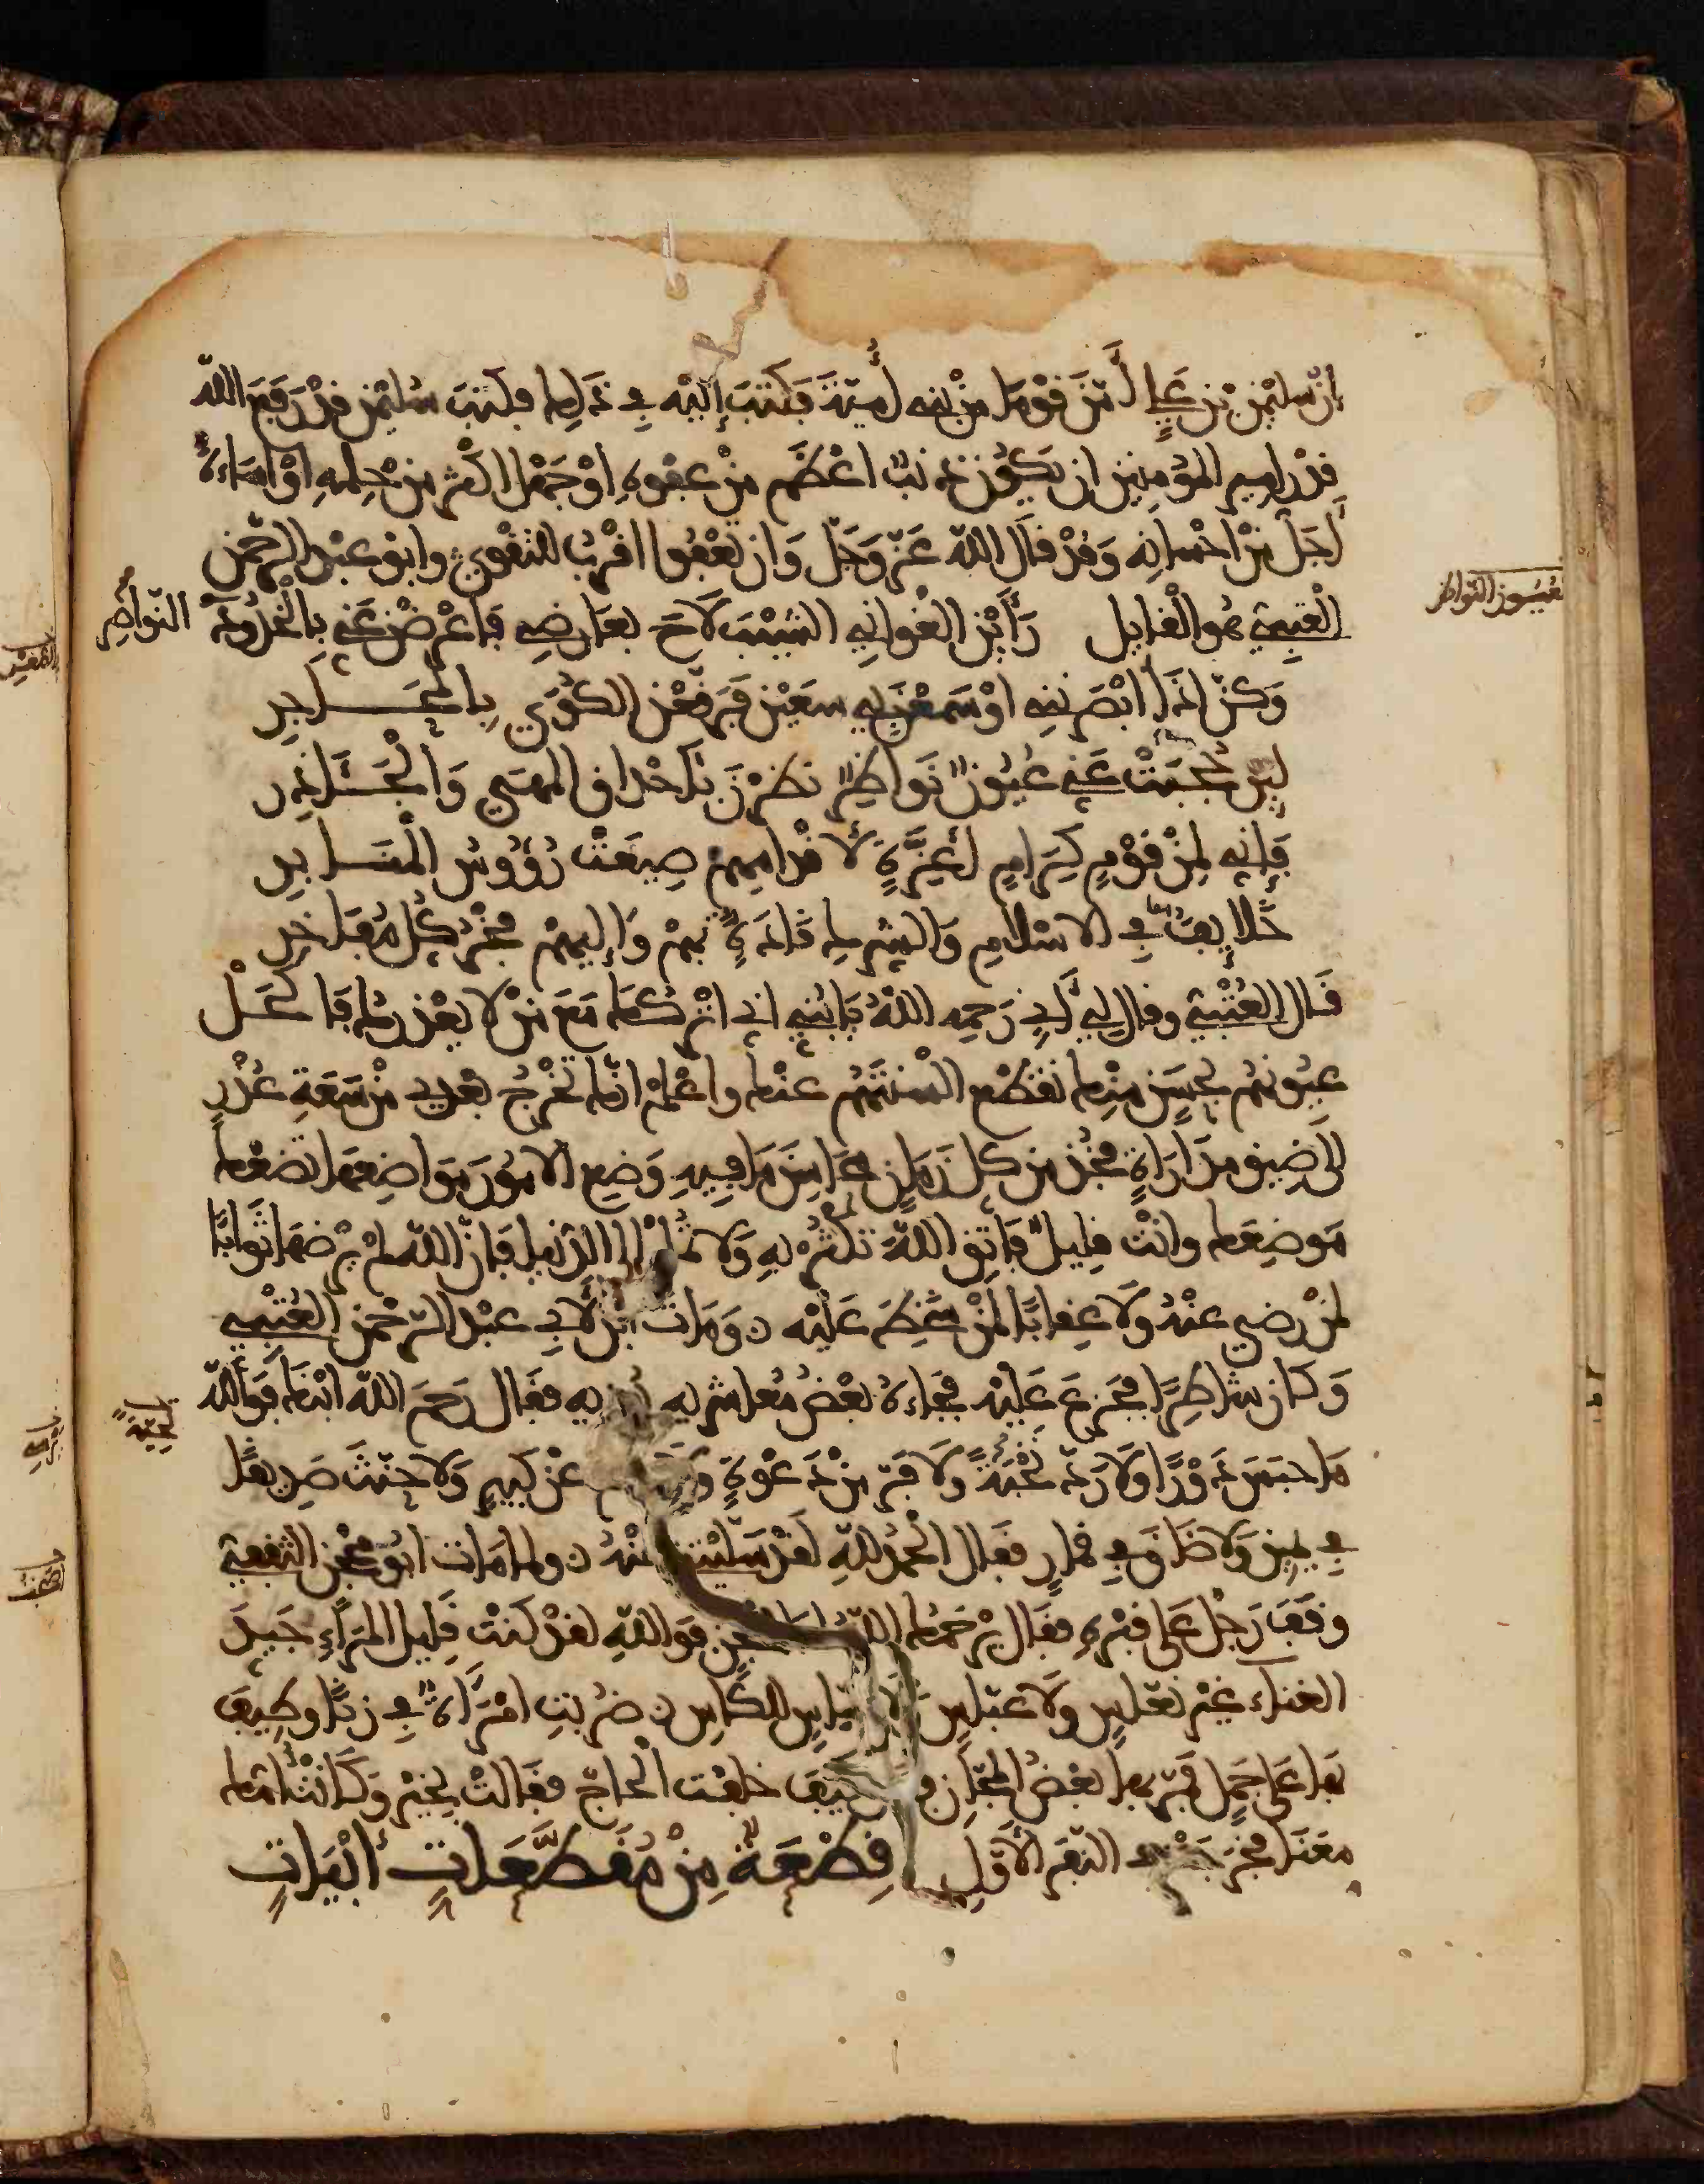 ان سليمن بن علي أمن قوما من بني أمية فكتب إليه في ذلك فكتب سليمن قد رفع الله
قدر امير المؤمنين ان يكون ذنب اعظم من عفوه او جهل اكثر من حلمه او اساءة
أجل من احسانه وقد قال الله عز وجل وان تعفوا اقرب للتقوى وابو عبد الرحمن
العتبي هو القايل رأين الغواني الشيب لاح بعارضي فاعرضن عني بالخدود النواضر
وكن اذا ابصرنني او سمعن بي سعين فرقعن الكوى بالمحاجر
لين حجبت عني عيون نواظر نظرن باحداق المهى والجآذر
فإني لمن قوم كرام أعزة لأقدامهم صيغت رؤوس المنابر
خلايف في الاسلام والشرك قادة بهم وإليهم فخر كل مفاخر
قال العتبي وقال لي أبي رحمه الله يا بني اذا اتركك مع من لا يعذرك فاكحل
عيونهم بحسن منك تقطع السنتهم عنك واعلم انك تخرج بعدي من سعة عذر
الى ضيق مداراة فخذ من كل زمان احسن ما فيه وضع الامور مواضعها تضعك
موضعك وانت قليل فاتق الله تكثر به ولا الدنيا فان الله لم يرضها ثوابا
لمن رضي عنه ولا عقابا لمن سخط عليه ومات ابن لأبي عبد الرحمن العتبي
وكان شاطرا فجزع عليه فجاءه بعض معاشريه فقال رحم الله ابنك فوالله
ما حبس دورا ولا رد نخبة ولا فر من دعوة عن كبير ولا حنث صديقا
في يمين ولا ضاق في قمار فقال الحمد لله لقد سليتني عنه ولما مات ابو محجن الثقفي
وقف رجل على قبره فقال يرحمك الله محجن فوالله لقد كنت قليل المراء جيد
الغناء غير نعاس ولا عباس للكاس ضربت امرأة في زنا وطيف
بها على جمل فمر بها بعض المجان كيف خلفت الحاج فقالت بخير وكانت امك
معنا فخرجت في النفر الأول قطعة من مقطعات أبيات
عيون النواظر
النواضر